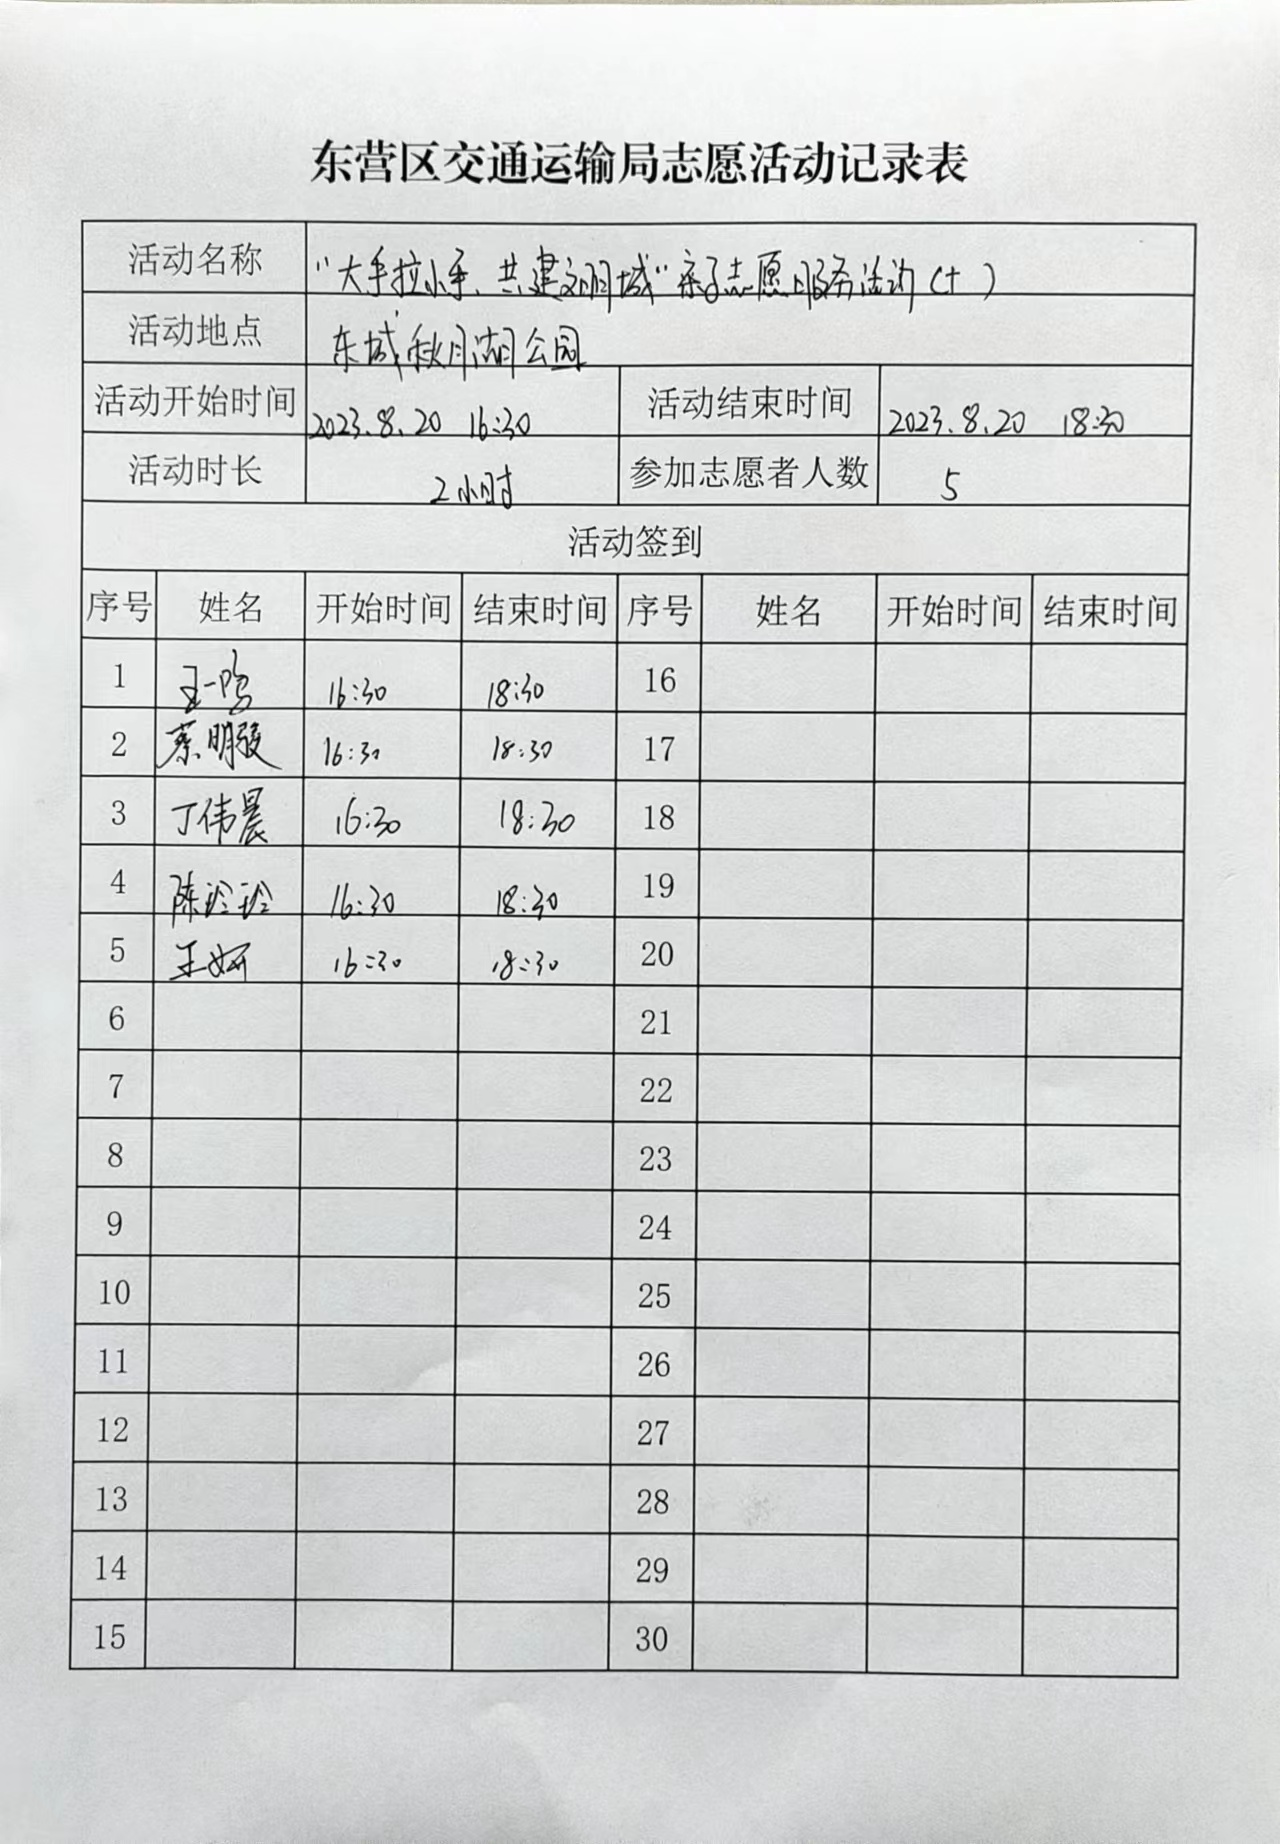 东营区交通运输局志愿活动记录表
活动名称 "大手拉小手、共建文明城"亲子志愿服务活动(十)
活动地点 东城秋月湖公园
活动开始时间 2023.8.20 16:30 活动结束时间 2023.8.20 18:30
活动时长 2小时 参加志愿者人数 5
活动签到
序号 姓名 开始时间 结束时间 序号 姓名 开始时间 结束时间
1 王一鸣 16:30 18:30 16
2 蔡明 16:30 18:30 17
3 丁伟晨 16:30 18:30 18
4 陈玲玲 16:30 18:30 19
5 王妍 16:30 18:30 20
6 21
7 22
8 23
9 24
10 25
11 26
12 27
13 28
14 29
15 30